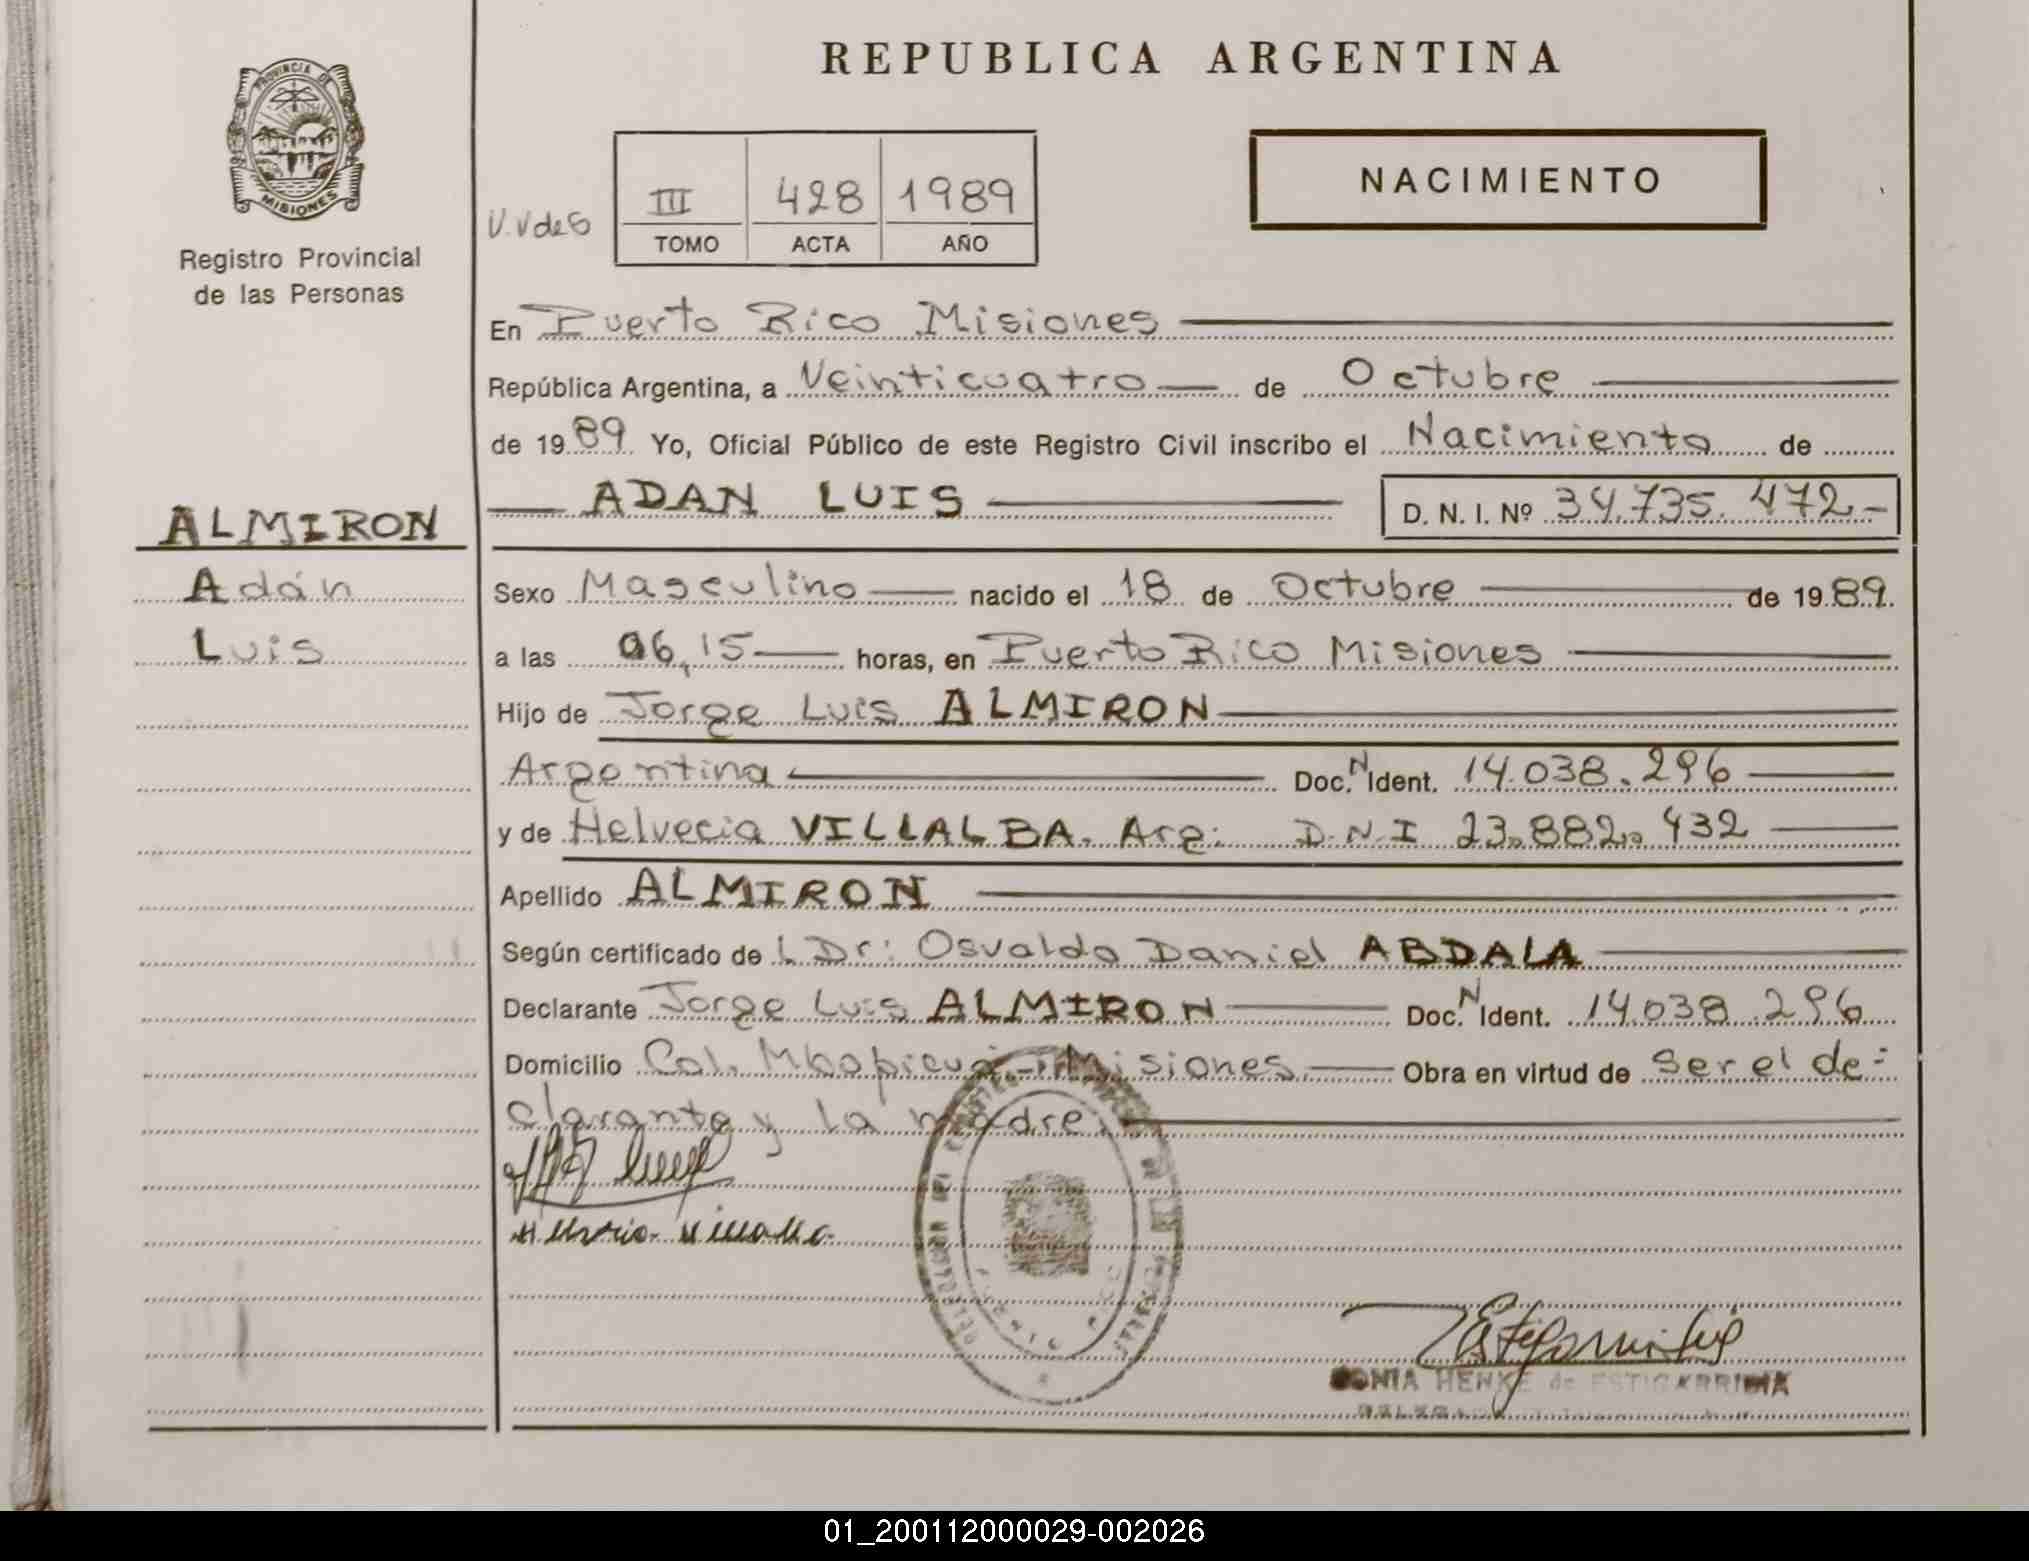 REPUBLICA ARGENTINA
PROVINCIA DE
MISIONES
Registro Provincial
de las Personas
NACIMIENTO
V.V de G
III 428 1989
TOMO ACTA AÑO
En Puerto Rico Misiones
República Argentina, a Veinticuatro de Octubre
de 1989 Yo, Oficial Público de este Registro Civil inscribo el Nacimiento de
ADAN LUIS D. N. I. Nº 34.735.472.-
ALMIRON
Adán
Luis
Sexo Masculino nacido el 18 de Octubre de 1989.
a las 06,15 horas, en Puerto Rico Misiones
Hijo de Jorge Luis ALMIRON
Argentina Doc. N Ident. 14.038.296
y de Helvecia VILLALBA. Arg: D.N.I 23.882.432
Apellido ALMIRON
Según certificado de L Dr: Osvaldo Daniel ABDALA
Declarante Jorge Luis ALMIRON Doc. N Ident. 14.038.296
Domicilio Col. Mbopicuá - Misiones. Obra en virtud de ser el de=
clarante y la madre.
SONIA HENKE de ESTIGARRIBIA
01_200112000029-002026